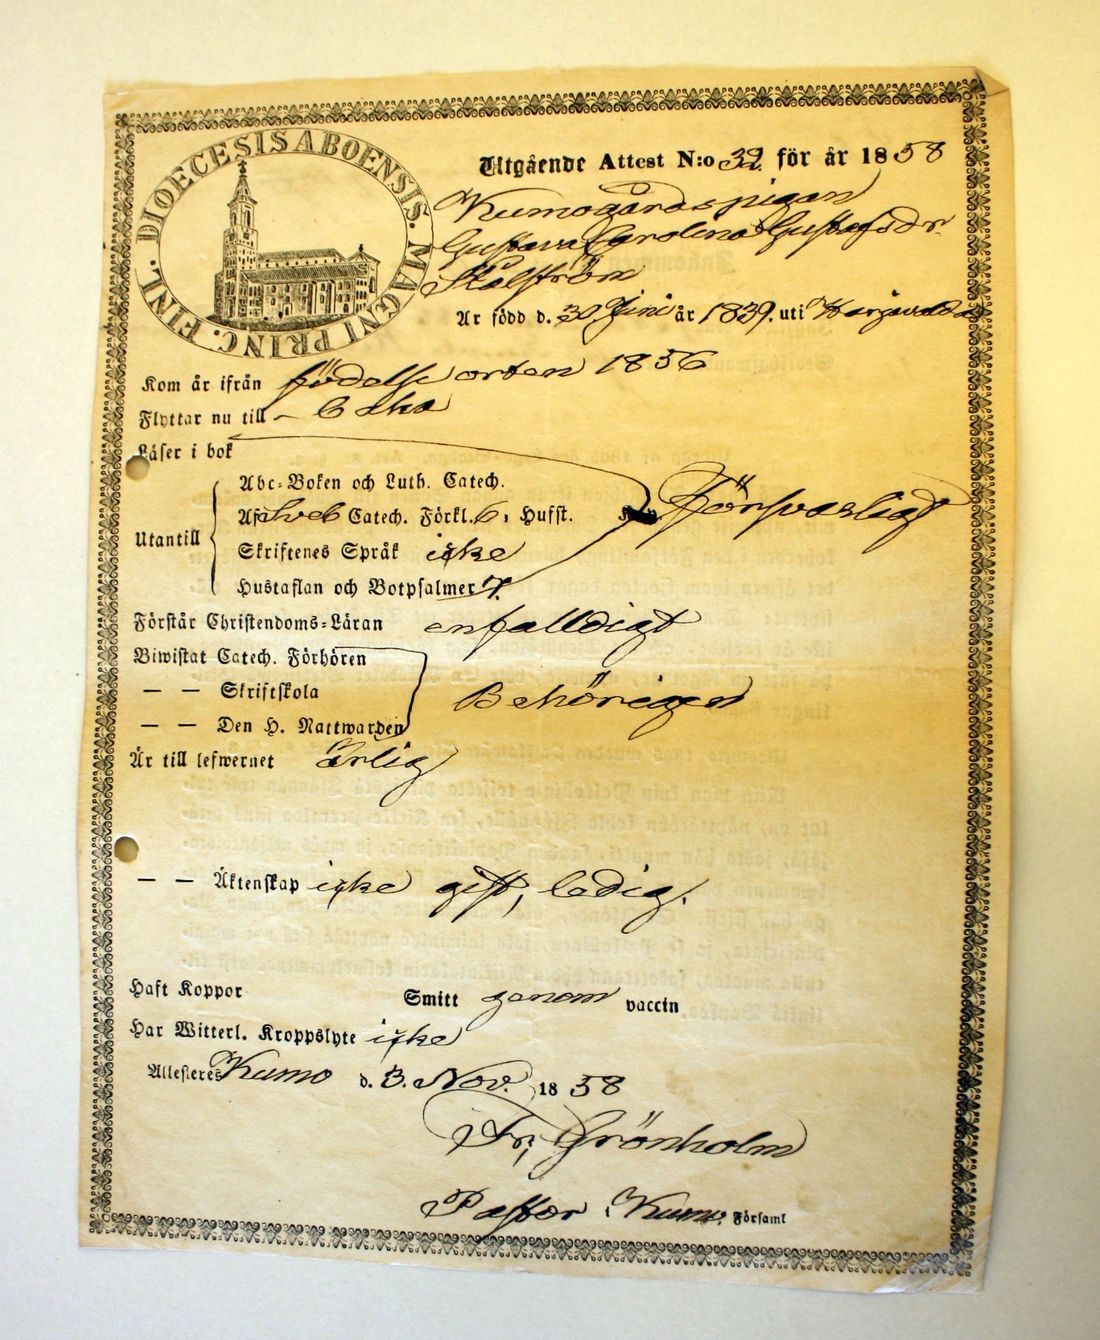 DIOECESIS ABOENSIS. MAGNI PRINC. FINL.
Utgående Attest N:o 32 för år 1858
Kumogårdspigan
Gustava Carolina Gustafsdr
Stålström
Är född d. 30 Juni år 1839. uti Harjavalda
Kom år ifrån födelse orten 1856
Flyttar nu till
Läser i bok
Abc-Boken och Luth. Catech.
Utantill
Af Sveb Catech. Förkl. 6, Husst.
Försvarligt
Skriftenes Språk icke
Hustaflan och Botpsalmer 7.
Förstår Christendoms-Läran enfalldigt
Biwistat Catech. Förhören
— — Skriftskola
Behörigen
— — Den H. Nattwarden
Är till lefwernet Ärlig
— — Äktenskap icke gift, ledig.
Haft Koppor Smitt genom vaccin
Har Witterl. Kroppslyte icke
Attesteres Kumo d. 3. Nov. 1858
Fr, Grönholm
Pastor i Kumo Församl